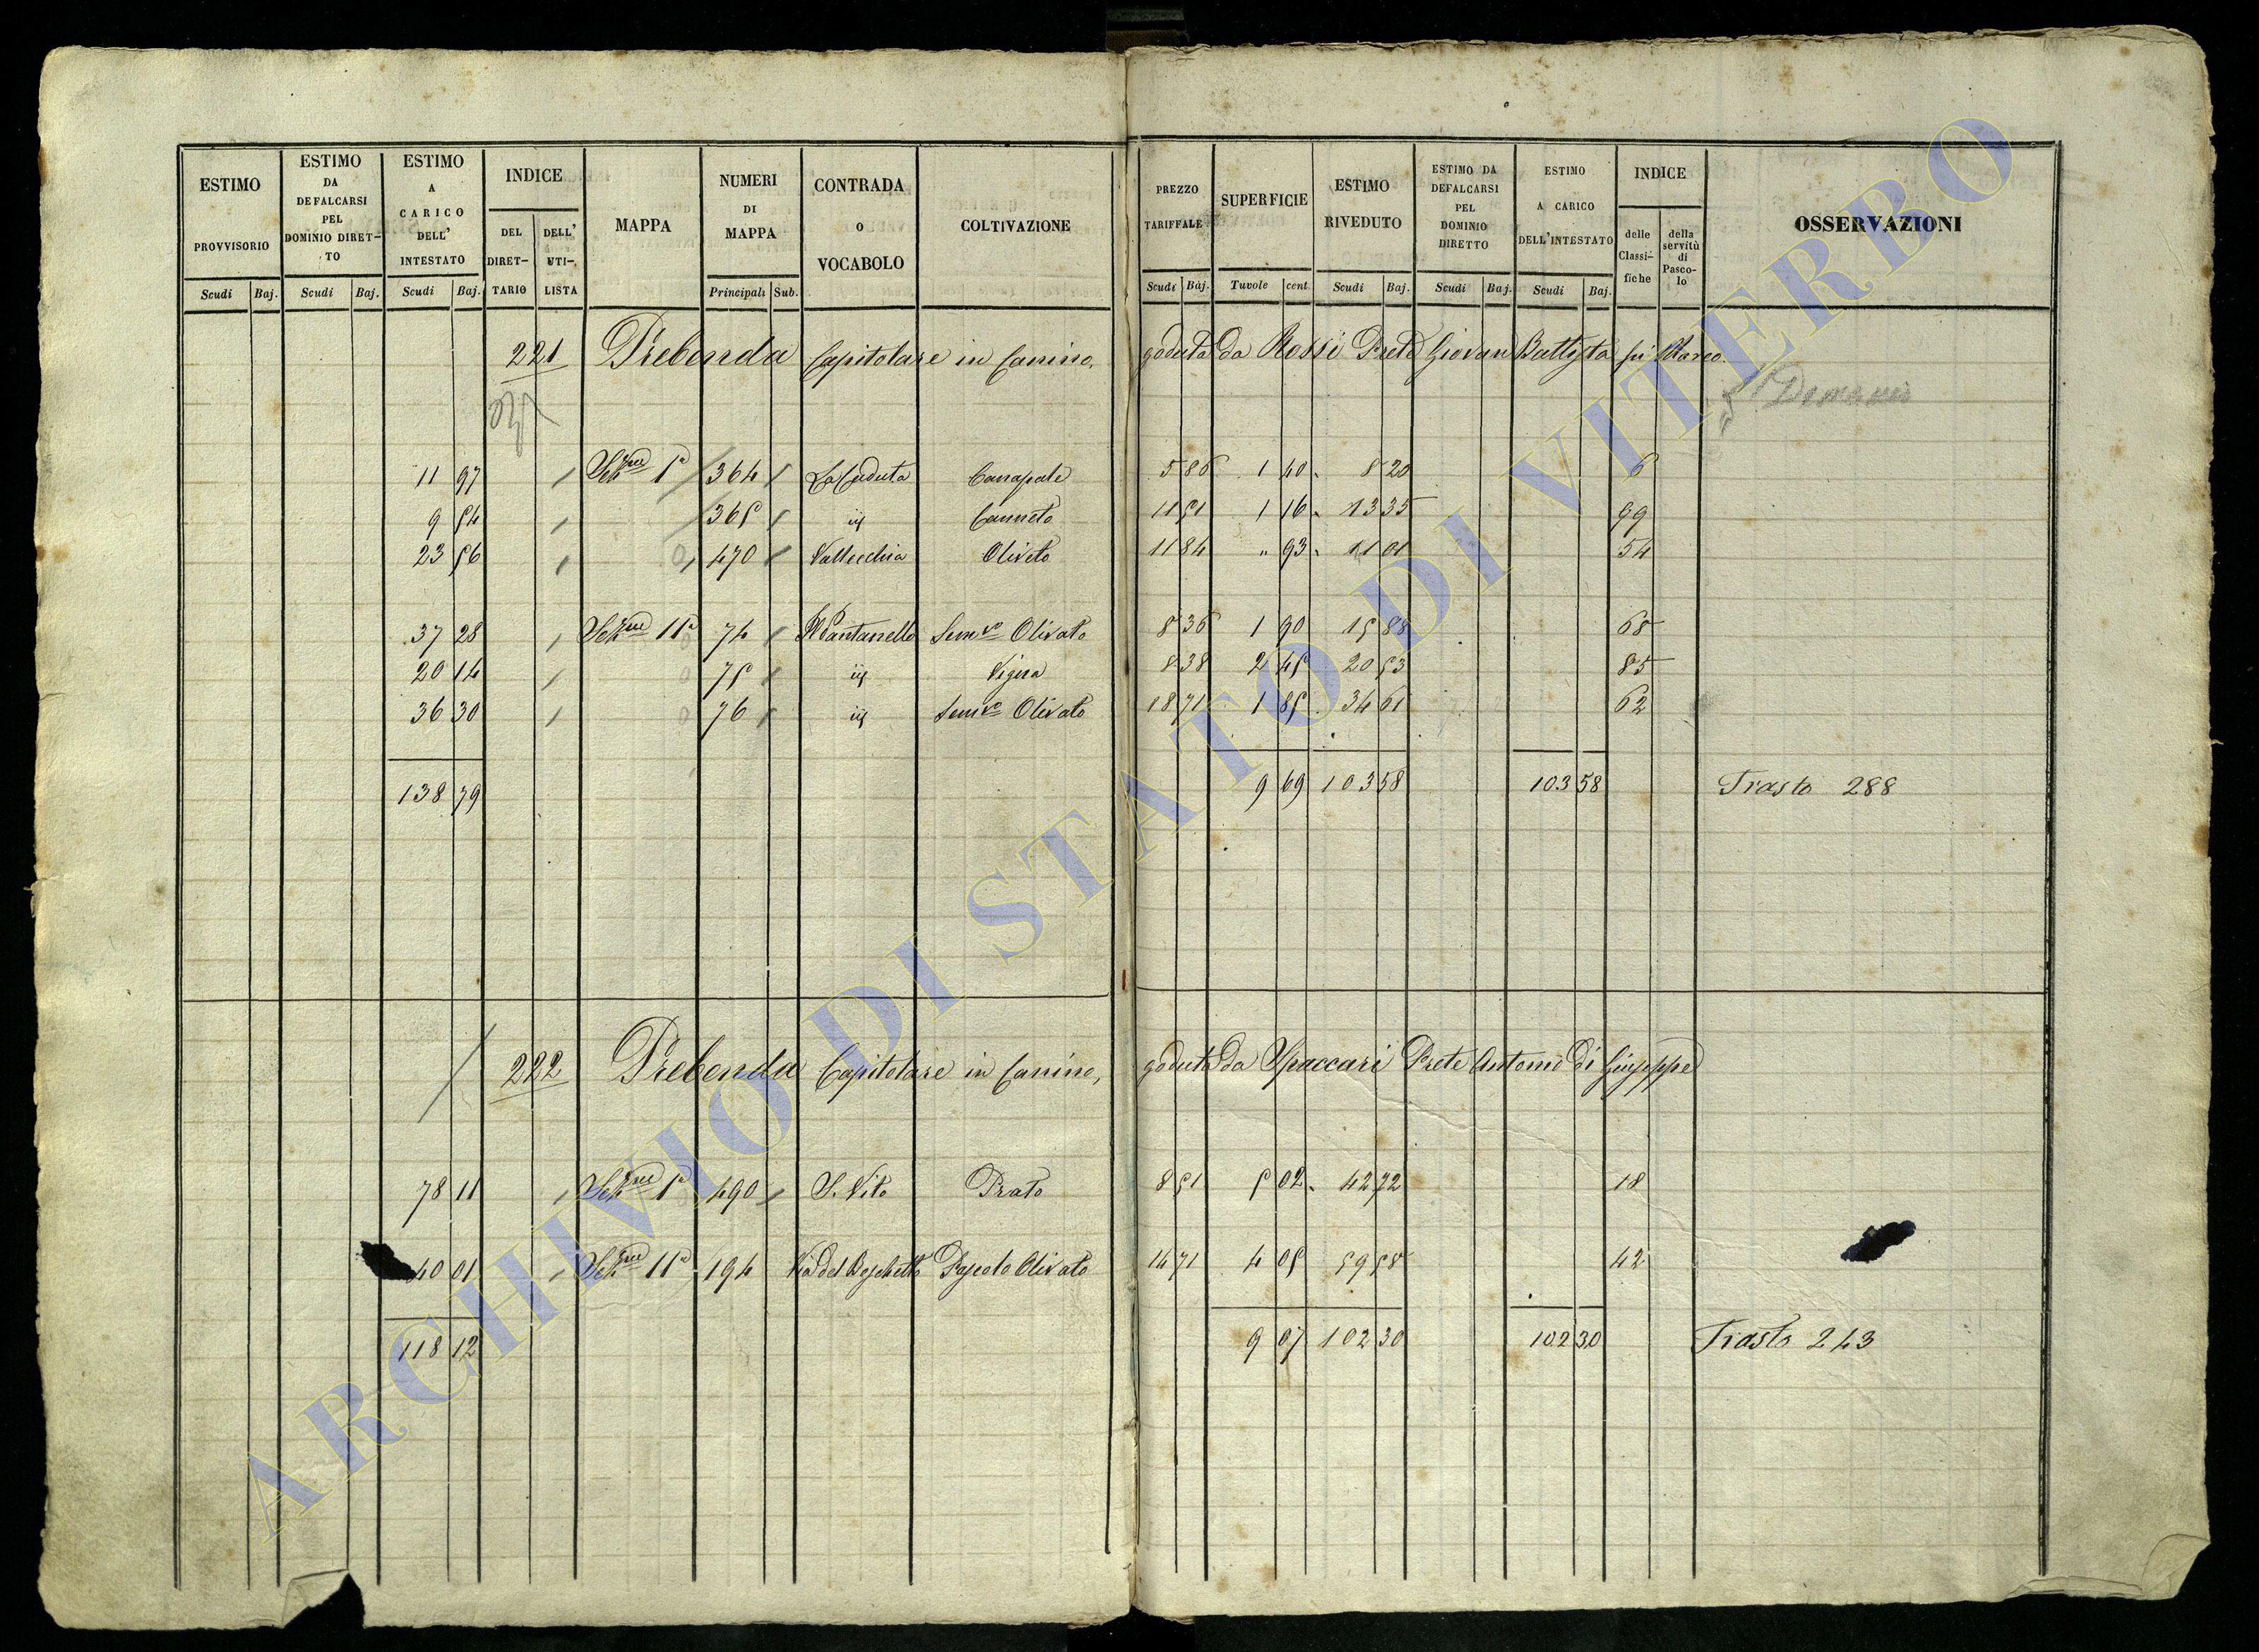 ESTIMO PROVVISORIO Scudi Baj.
ESTIMO DA DEFALCARSI PEL DOMINIO DIRET-TO Scudi Baj.
ESTIMO A CARICO DELL' INTESTATO Scudi Baj.
INDICE DEL DIRET-TARIO DELL' UTI-LISTA
MAPPA
NUMERI DI MAPPA Principali Sub.
CONTRADA o VOCABOLO
COLTIVAZIONE
PREZZO TARIFFALE Scudi Baj.
SUPERFICIE Tavole cent.
ESTIMO RIVEDUTO Scudi Baj.
ESTIMO DA DEFALCARSI PEL DOMINIO DIRETTO Scudi Baj.
ESTIMO A CARICO DELL'INTESTATO Scudi Baj.
INDICE delle Classi-fiche della servitù di Pasco-lo
OSSERVAZIONI
221 Prebenda Capitolare in Canino, goduta da Rossi Prete Giovan Battista fu Marco.
Demanio
11 97 Sezne 1a 364 La Caduta Canapule 5 86 1 40 8 20 6
9 54 365 id Canneto 11 51 1 16 13 35 99
23 56 470 Vallecchia Oliveto 11 84 " 93 11 01 54
37 28 Sezne 11a 74 Il Pantanello Semvo Olivato 8 36 1 90 15 88 68
20 14 75 id Vigna 8 38 2 45 20 53 85
36 30 76 id Semvo Olivato 18 71 1 85 34 61 62
138 79 9 69 103 58 103 58 Trasto 288
222 Prebenda Capitolare in Canino, goduta da Spaccari Prete Antonio di Giuseppe
78 11 Sezne 1a 490 S. Vito Prato 8 51 5 02 42 72 18
40 01 Sezne 11a 194 Via del Boschetto Pascolo Olivato 14 71 4 05 59 58 42
118 12 9 07 102 30 102 30 Trasto 243
ARCHIVIO DI STATO DI VITERBO